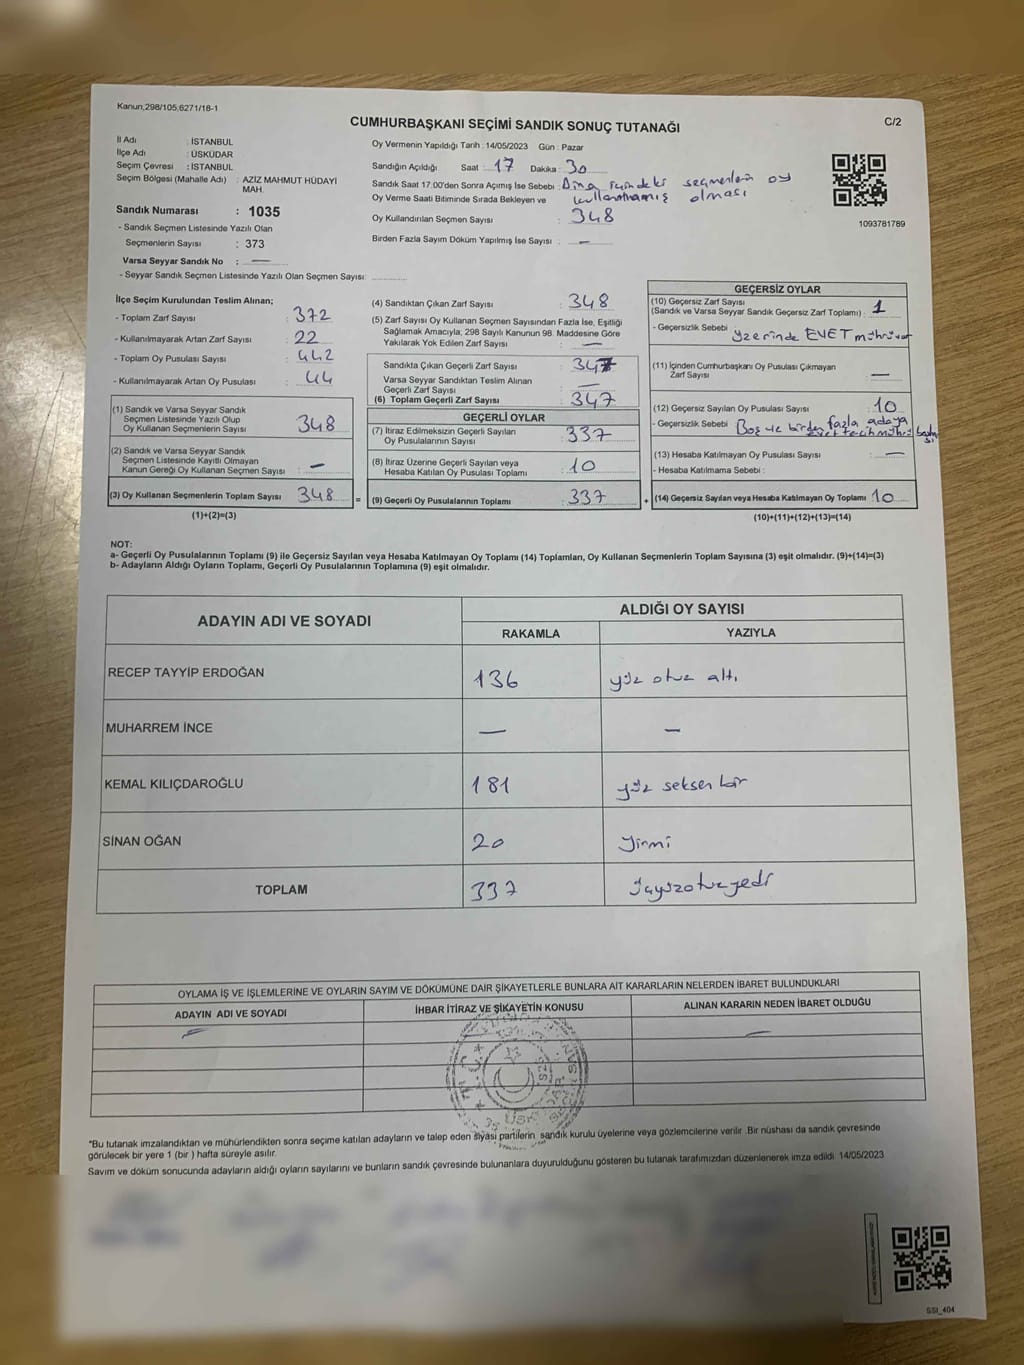 Kanun,298/105,6271/18-1
CUMHURBAŞKANI SEÇİMİ SANDIK SONUÇ TUTANAĞI
C/2
İl Adı : İSTANBUL
İlçe Adı : ÜSKÜDAR
Seçim Çevresi : İSTANBUL
Seçim Bölgesi (Mahalle Adı) : AZİZ MAHMUT HÜDAYİ
MAH.
Sandık Numarası : 1035
- Sandık Seçmen Listesinde Yazılı Olan
Seçmenlerin Sayısı : 373
Varsa Seyyar Sandık No : —
- Seyyar Sandık Seçmen Listesinde Yazılı Olan Seçmen Sayısı:
Oy Vermenin Yapıldığı Tarih : 14/05/2023 Gün : Pazar
Sandığın Açıldığı Saat : 17 Dakika : 30
Sandık Saat 17:00'den Sonra Açımış İse Sebebi : Bina içindeki seçmenlerin oy
Oy Verme Saati Bitiminde Sırada Bekleyen ve kullanmamış olması
Oy Kullandırılan Seçmen Sayısı : 348
Birden Fazla Sayım Döküm Yapılmış İse Sayısı : —
1093781789
İlçe Seçim Kurulundan Teslim Alınan;
- Toplam Zarf Sayısı : 372
- Kullanılmayarak Artan Zarf Sayısı : 22
- Toplam Oy Pusulası Sayısı : 442
- Kullanılmayarak Artan Oy Pusulası : 44
(1) Sandık ve Varsa Seyyar Sandık
Seçmen Listesinde Yazılı Olup
Oy Kullanan Seçmenlerin Sayısı : 348
(2) Sandık ve Varsa Seyyar Sandık
Seçmen Listesinde Kayıtlı Olmayan
Kanun Gereği Oy Kullanan Seçmen Sayısı : —
(3) Oy Kullanan Seçmenlerin Toplam Sayısı : 348 =
(1)+(2)=(3)
(4) Sandıktan Çıkan Zarf Sayısı : 348
(5) Zarf Sayısı Oy Kullanan Seçmen Sayısından Fazla İse, Eşitliği
Sağlamak Amacıyla, 298 Sayılı Kanunun 98. Maddesine Göre
Yakılarak Yok Edilen Zarf Sayısı : —
Sandıkta Çıkan Geçerli Zarf Sayısı : 347
Varsa Seyyar Sandıktan Teslim Alınan
Geçerli Zarf Sayısı : —
(6) Toplam Geçerli Zarf Sayısı : 347
GEÇERLİ OYLAR
(7) İtiraz Edilmeksizin Geçerli Sayılan
Oy Pusulalarının Sayısı : 337
(8) İtiraz Üzerine Geçerli Sayılan veya
Hesaba Katılan Oy Pusulası Toplamı : 10
(9) Geçerli Oy Pusulalarının Toplamı : 337 +
GEÇERSİZ OYLAR
(10) Geçersiz Zarf Sayısı
(Sandık ve Varsa Seyyar Sandık Geçersiz Zarf Toplamı) : 1
- Geçersizlik Sebebi : Üzerinde EVET mührü var
(11) İçinden Cumhurbaşkanı Oy Pusulası Çıkmayan
Zarf Sayısı : —
(12) Geçersiz Sayılan Oy Pusulası Sayısı : 10
- Geçersizlik Sebebi : Boş ve birden fazla adaya
evet tercih mührü
(13) Hesaba Katılmayan Oy Pusulası Sayısı : —
- Hesaba Katılmama Sebebi :
(14) Geçersiz Sayılan veya Hesaba Katılmayan Oy Toplamı : 10
(10)+(11)+(12)+(13)=(14)
NOT:
a- Geçerli Oy Pusulalarının Toplamı (9) ile Geçersiz Sayılan veya Hesaba Katılmayan Oy Toplamı (14) Toplamları, Oy Kullanan Seçmenlerin Toplam Sayısına (3) eşit olmalıdır. (9)+(14)=(3)
b- Adayların Aldığı Oyların Toplamı, Geçerli Oy Pusulalarının Toplamına (9) eşit olmalıdır.
ADAYIN ADI VE SOYADI
ALDIĞI OY SAYISI
RAKAMLA YAZIYLA
RECEP TAYYİP ERDOĞAN 136 yüz otuz altı
MUHARREM İNCE — —
KEMAL KILIÇDAROĞLU 181 yüz seksen bir
SİNAN OĞAN 20 yirmi
TOPLAM 337 üçyüzotuzyedi
OYLAMA İŞ VE İŞLEMLERİNE VE OYLARIN SAYIM VE DÖKÜMÜNE DAİR ŞİKAYETLERLE BUNLARA AİT KARARLARIN NELERDEN İBARET BULUNDUKLARI
ADAYIN ADI VE SOYADI İHBAR İTİRAZ VE ŞİKAYETİN KONUSU ALINAN KARARIN NEDEN İBARET OLDUĞU
*Bu tutanak imzalandıktan ve mühürlendikten sonra seçime katılan adayların ve talep eden siyasi partilerin sandık kurulu üyelerine veya gözlemcilerine verilir .Bir nüshası da sandık çevresinde
görülecek bir yere 1 (bir ) hafta süreyle asılır.
Sayım ve döküm sonucunda adayların aldığı oyların sayılarını ve bunların sandık çevresinde bulunanlara duyurulduğunu gösteren bu tutanak tarafımızdan düzenlenerek imza edildi. 14/05/2023
SSI_404